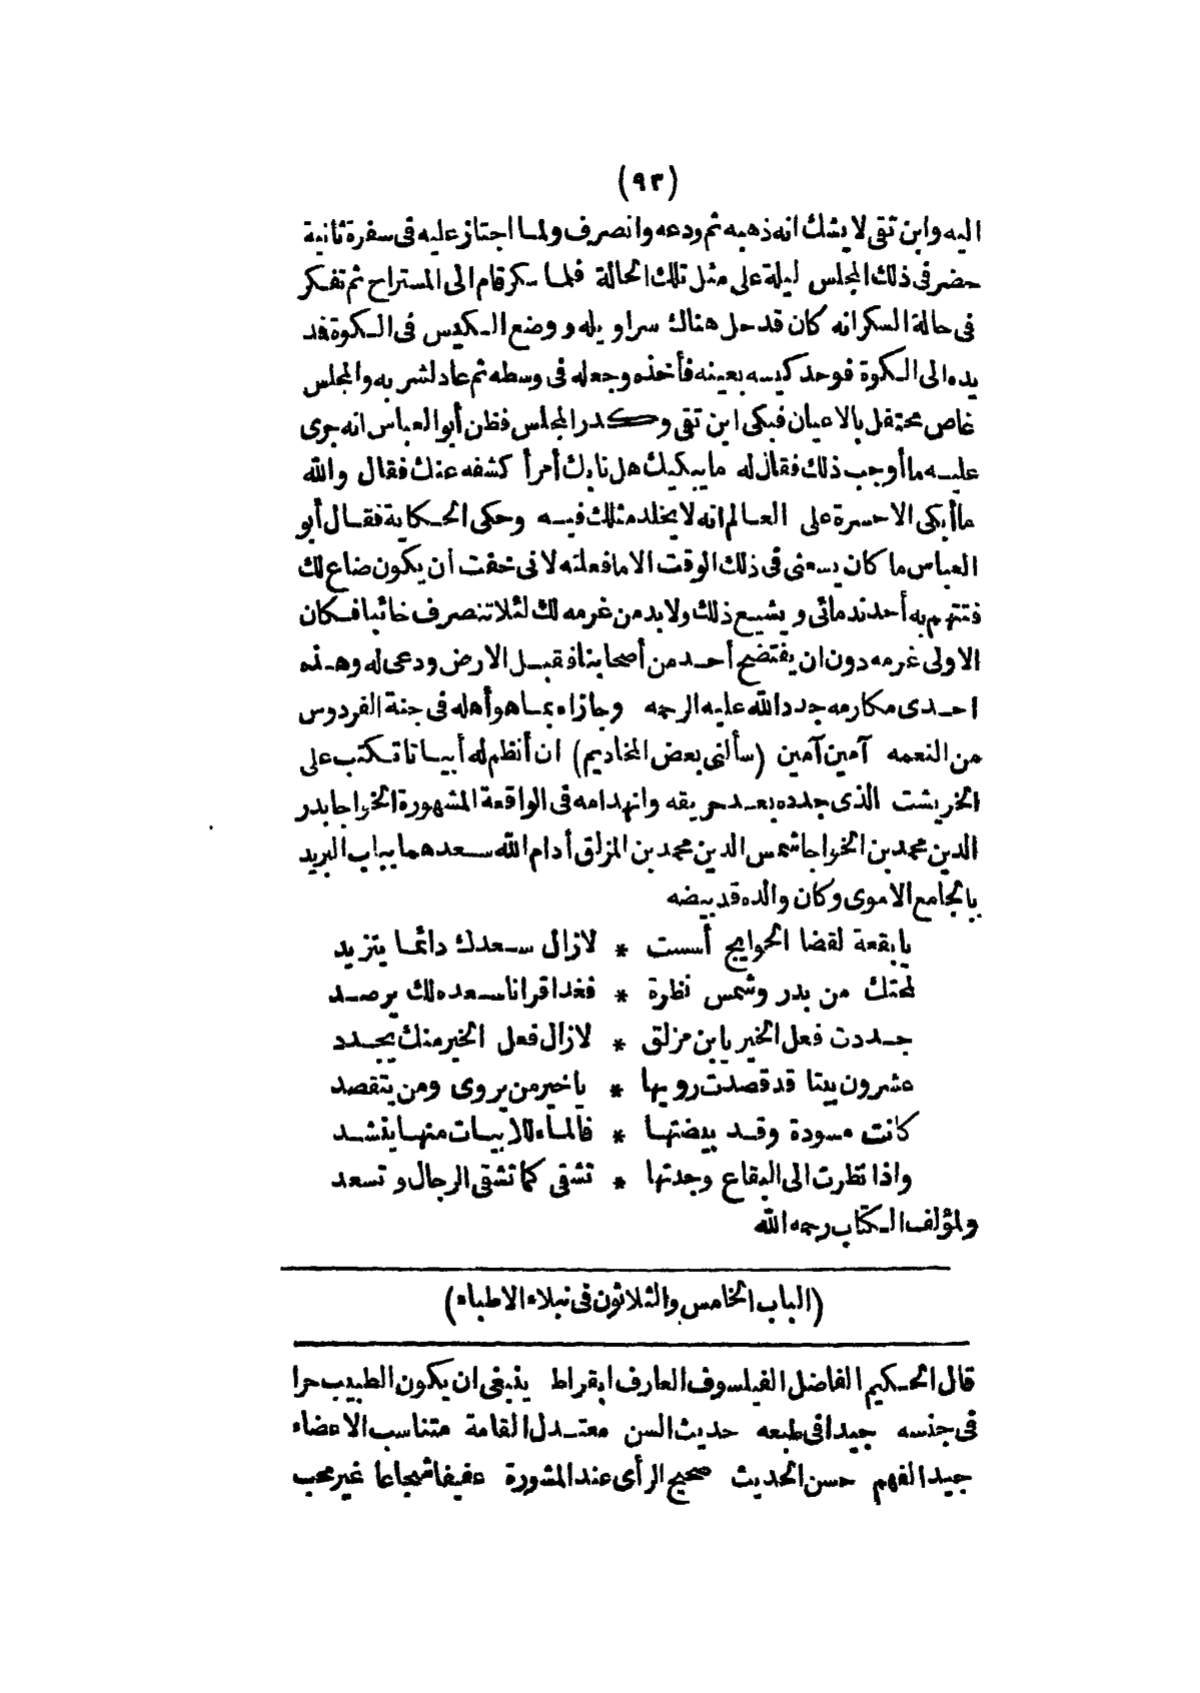 (٩٣)
اليه وابن تقى لا يشك انه ذهبه ثم ودعه وانصرف ولما اجتاز عليه فى سفرة ثانية
حضر فى ذلك المجلس ليلة على مثل تلك الحالة فلما سكر قام الى المستراح ثم تفكر
فى حالة السكر انه كان قد حل هناك سراويله ووضع الكيس فى الكوة فمد
يده الى الكوة فوجد كيسه بعينه فأخذه وجعله فى وسطه ثم عاد لشربه والمجلس
غاص محتفل بالاعيان فبكى ابن تقى وكدر المجلس فظن أبو العباس انه جرى
عليه ما أوجب ذلك فقال له ما يبكيك هل نابك أمر أ كشفه عنك فقال والله
ما أبكى الا حسرة على العالم انه لا يخلد مثلك فيه وحكى الحكاية فقال أبو
العباس ما كان يسعنى فى ذلك الوقت الا ما فعلته لانى خفت أن يكون ضاع لك
فتتهم به أحد ندمائى ويشيع ذلك ولا بد من غرمه لك لئلا تنصرف خائبا فكان
الاولى غرمه دون ان يفتضح أحد من أصحابنا فقبل الارض ودعى له وهذه
احدى مكارمه جدد الله عليه الرحمه وجازاه بما هو أهله فى جنة الفردوس
من النعمه آمين آمين (سألنى بعض المخاديم) ان أنظم له أبياتا تكتب على
الخريشت الذى جدده بعد حريقه وانهدامه فى الواقعة المشهورة الخواجا بدر
الدين محمد بن الخواجا شمس الدين محمد بن المزلق أدام الله سعدهما بباب البريد
بالجامع الاموى وكان والده قد بيضه
يا بقعة لقضا الحوايج أسست * لازال سعدك دائما يتزيد
لمحتك من بدر وشمس نظرة * فغدا قرانا سعده لك يرصد
جددت فعل الخير يا بن مزلق * لازال فعل الخير منك يجدد
عشرون بيتا قد قصدت رويها * يا خير من يروى ومن يتقصد
كانت مسودة وقد بيضتها * فالماء للابيات منها ينشد
واذا نظرت الى البقاع وجدتها * تشقى كما تشقى الرجال وتسعد
ولمؤلف الكتاب رحمه الله
(الباب الخامس والثلاثون فى نبلاء الاطباء)
قال الحكيم الفاضل الفيلسوف العارف ابقراط ينبغى ان يكون الطبيب حرا
فى جنسه جيدا فى طبعه حديث السن معتدل القامة متناسب الاعضاء
جيد الفهم حسن الحديث صحيح الرأى عند المشورة عفيفا شجاعا غير محب